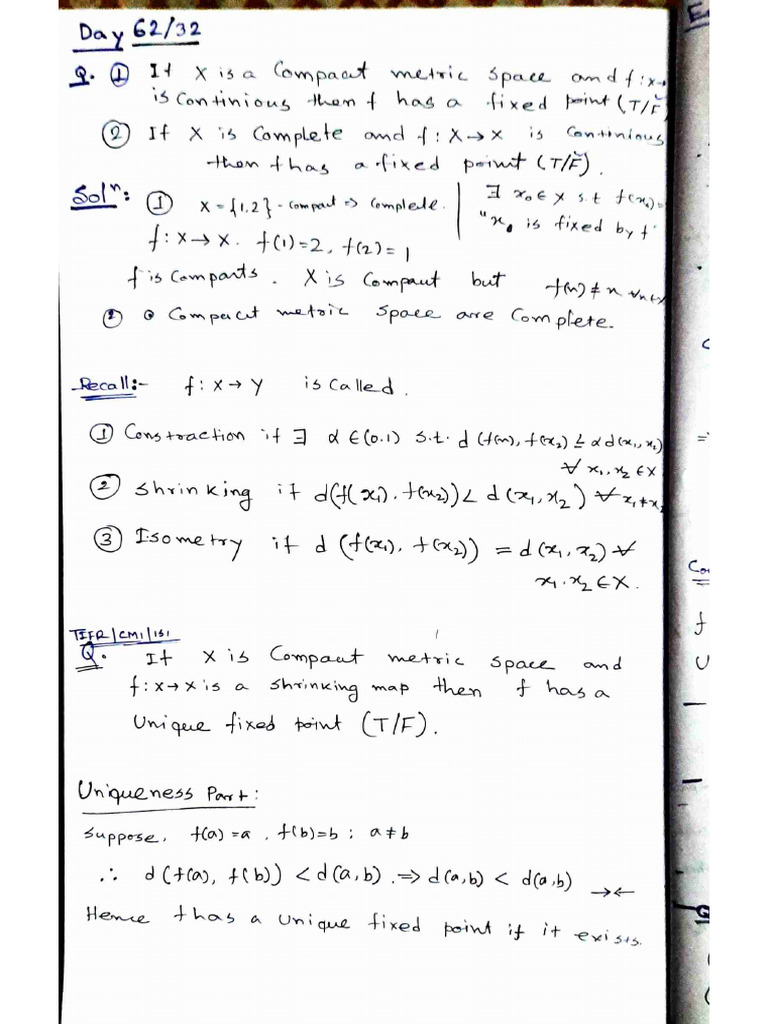 Day 62/32
Q. ① If X is a Compact metric space and f: X→
is Continious then f has a fixed point (T/F)
② If X is Complete and f: X→X is Continious
then f has a fixed point (T/F).
Solⁿ: ① X = {1,2} - Compact ⇒ Complete. | ∃ x₀ ∈ X s.t f(x₀)=
f: X→X. f(1)=2, f(2)=1 | "x₀ is fixed by f"
f is Comparts. X is Compact but f(x) ≠ x ∀x∈X
② ⊙ Compact metric space are Complete.
Recall:- f: X→Y is Called.
① Constraction if ∃ α ∈ (0.1) s.t. d(f(x), f(x₂) ≤ α d(x₁, x₂)
∀ x₁, x₂ ∈ X
② Shrinking if d(f(x₁). f(x₂)) < d(x₁, x₂) ∀ x₁ ≠ x₂
③ Isometry if d (f(x₁), f(x₂)) = d(x₁, x₂) ∀
x₁. x₂ ∈ X.
TIFR/CMI/ISI
Q. If X is Compact metric space and
f: X→X is a shrinking map then f has a
Unique fixed point (T/F).
Uniqueness Part:
Suppose, f(a) = a, f(b) = b ; a ≠ b
∴ d(f(a), f(b)) < d(a,b). ⇒ d(a,b) < d(a,b) →←
Hence f has a unique fixed point if it exists.